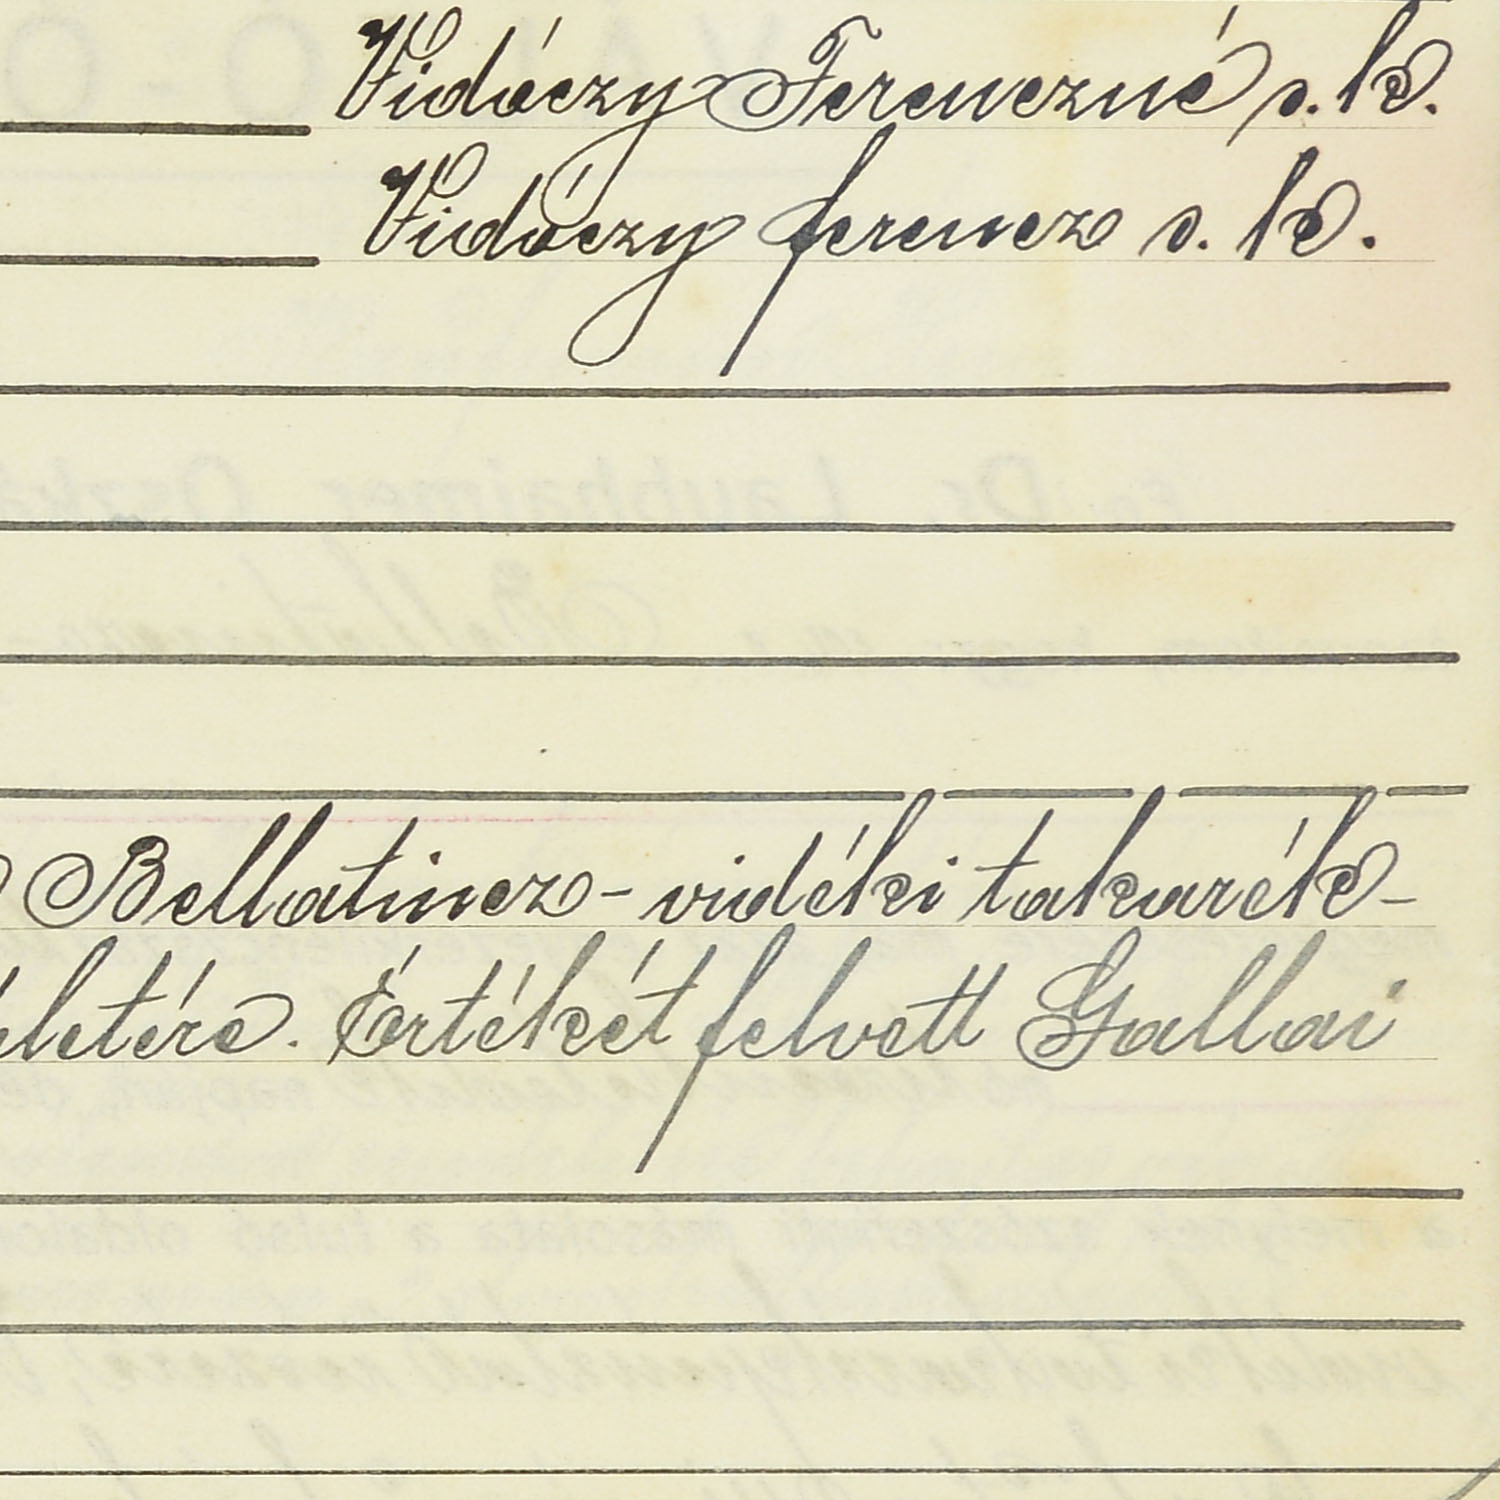 Vidóczy Ferenczné s. k.
Vidóczy ferencz s. k.
Bellatincz - vidéki takarék-
életére. Értékét felvett Gallai